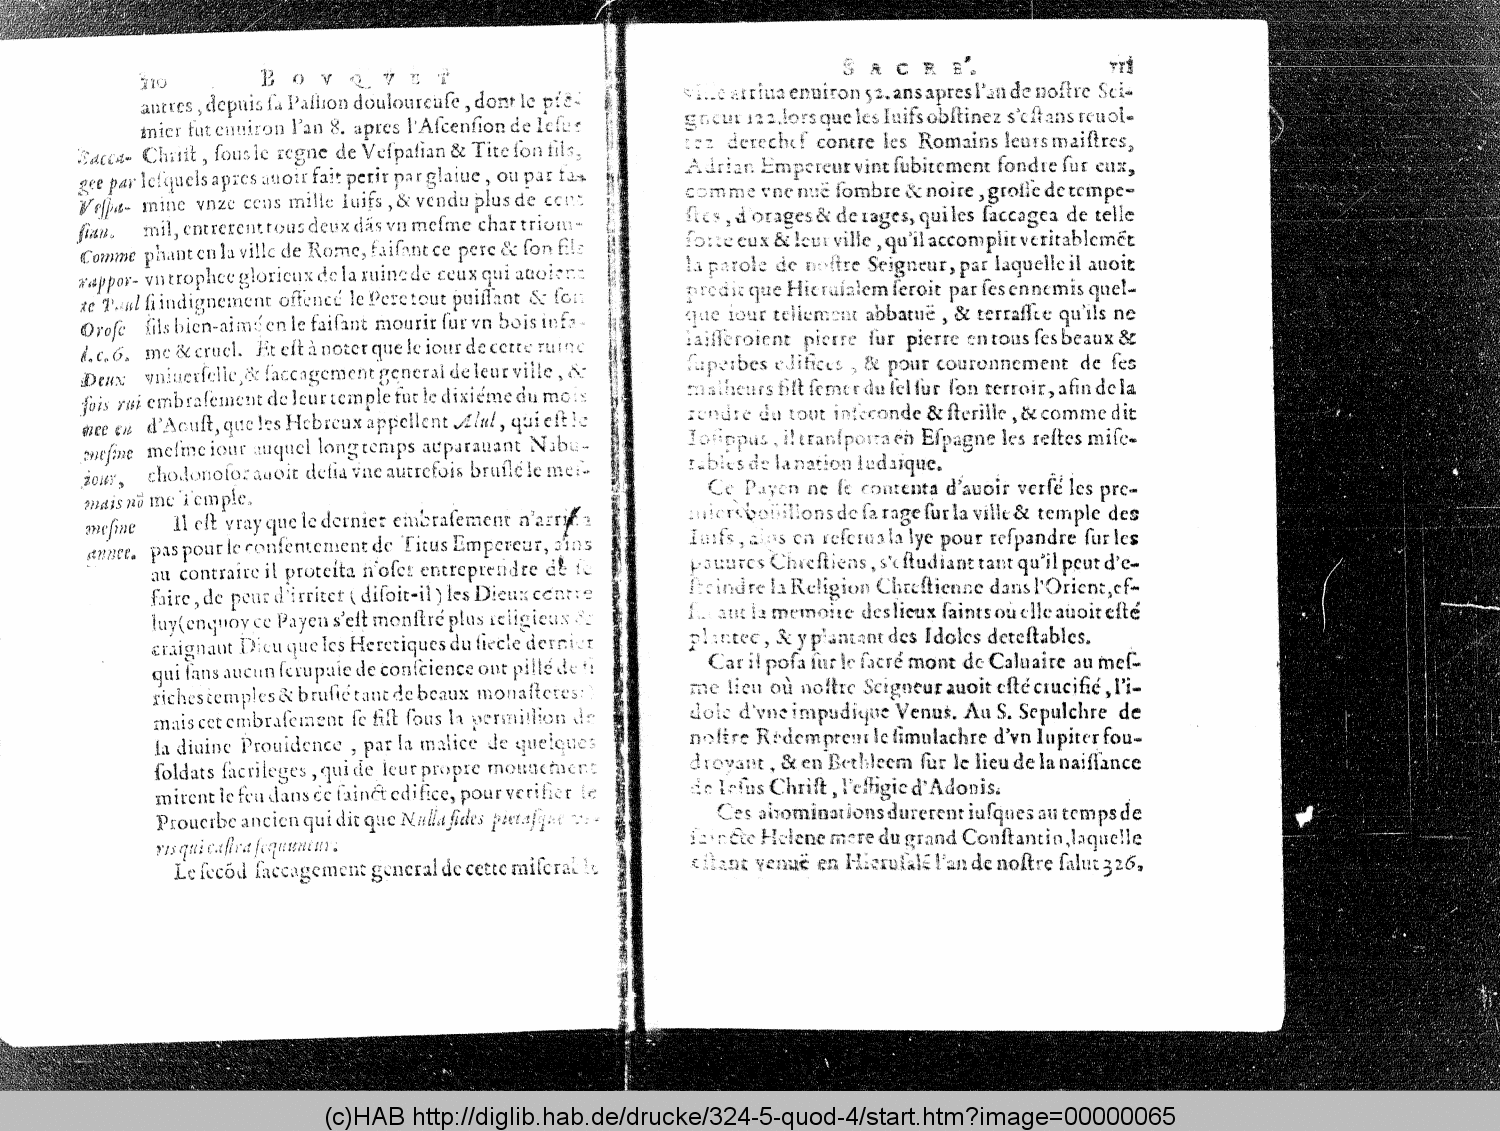 110 BOVQVET
autres, depuis sa Passion douloureuse, dont le pre-
mier fut enuiron l'an 8. apres l'Ascension de Iesus
Christ, sous le regne de Vespasian & Tite son fils,
lesquels apres auoir fait perir par glaiue, ou par fa-
mine vnze cens mille Iuifs, & vendu plus de cent
mil, entrerent tous deux dãs vn mesme char triom-
phant en la ville de Rome, faisant ce pere & son fils
vn trophee glorieux de la ruine de ceux qui auoient
si indignement offencé le Pere tout puissant & son
fils bien-aimé en le faisant mourir sur vn bois infa-
me & cruel. Et est à noter que le iour de cette ruine
vniuerselle, & saccagement general de leur ville, &
embrasement de leur temple fut le dixiéme du mois
d'Aoust, que les Hebreux appellent Alul, qui est le
mesme iour auquel long temps auparauant Nabu-
chodonosor auoit desia vne autrefois bruslé le mes-
me Temple.
Sacca-
gee par
Vespa-
sian.
Comme
rappor-
te Paul
Orose
l. c. 6.
Deux
fois rui
nee en
mesme
iour,
mais nõ
mesme
annee.
Il est vray que le dernier embrasement n'arriua
pas pour le consentement de Titus Empereur, ains
au contraire il protesta n'oser entreprendre de le
faire, de peur d'irriter (disoit-il) les Dieux contre
luy (enquoy ce Payen s'est monstré plus religieux &
craignant Dieu que les Heretiques du siecle dernier
qui sans aucun scrupule de conscience ont pillé de si
riches temples & bruslé tant de beaux monasteres:)
mais cet embrasement se fist sous la permission de
la diuine Prouidence, par la malice de quelques
soldats sacrileges, qui de leur propre mouuement
mirent le feu dans ce sainct edifice, pour verifier le
Prouerbe ancien qui dit que Nulla fides pietasque vi-
ris qui castra sequuntur.
Le secõd saccagement general de cette miserable
SACRÉ. 111
ville arriua enuiron 52. ans apres l'an de nostre Sei-
gneur 122. lors que les Iuifs obstinez s'estans reuol-
tez derechef contre les Romains leurs maistres,
Adrian Empereur vint subitement fondre sur eux,
comme vne nuë sombre & noire, grosse de tempe-
stes, d'orages & de rages, qui les saccagea de telle
sorte eux & leur ville, qu'il accomplit veritablemẽt
la parole de nostre Seigneur, par laquelle il auoit
predit que Hierusalem seroit par ses ennemis quel-
que iour tellement abbatuë, & terrassee qu'ils ne
laisseroient pierre sur pierre en tous ses beaux &
superbes edifices, & pour couronnement de ses
malheurs fist semer du sel sur son terroir, afin de la
rendre du tout infeconde & sterille, & comme dit
Iosippus, il transporta en Espagne les restes mise-
rables de la nation Iudaique.
Ce Payen ne se contenta d'auoir versé les pre-
miers boüillons de sa rage sur la ville & temple des
Iuifs, ains en reserua la lye pour respandre sur les
pauures Chrestiens, s'estudiant tant qu'il peut d'e-
steindre la Religion Chrestienne dans l'Orient, ef-
façant la memoire des lieux saints où elle auoit esté
plantee, & y plantant des Idoles detestables.
Car il posa sur le sacré mont de Caluaire au mes-
me lieu où nostre Seigneur auoit esté crucifié, l'i-
dole d'vne impudique Venus. Au S. Sepulchre de
nostre Redempteur le simulachre d'vn Iupiter fou-
droyant, & en Bethleem sur le lieu de la naissance
de Iesus Christ, l'effigie d'Adonis.
Ces abominations durerent iusques au temps de
saincte Helene mere du grand Constantin, laquelle
estant venuë en Hierusalẽ l'an de nostre salut 326,
(c)HAB http://diglib.hab.de/drucke/324-5-quod-4/start.htm?image=00000065